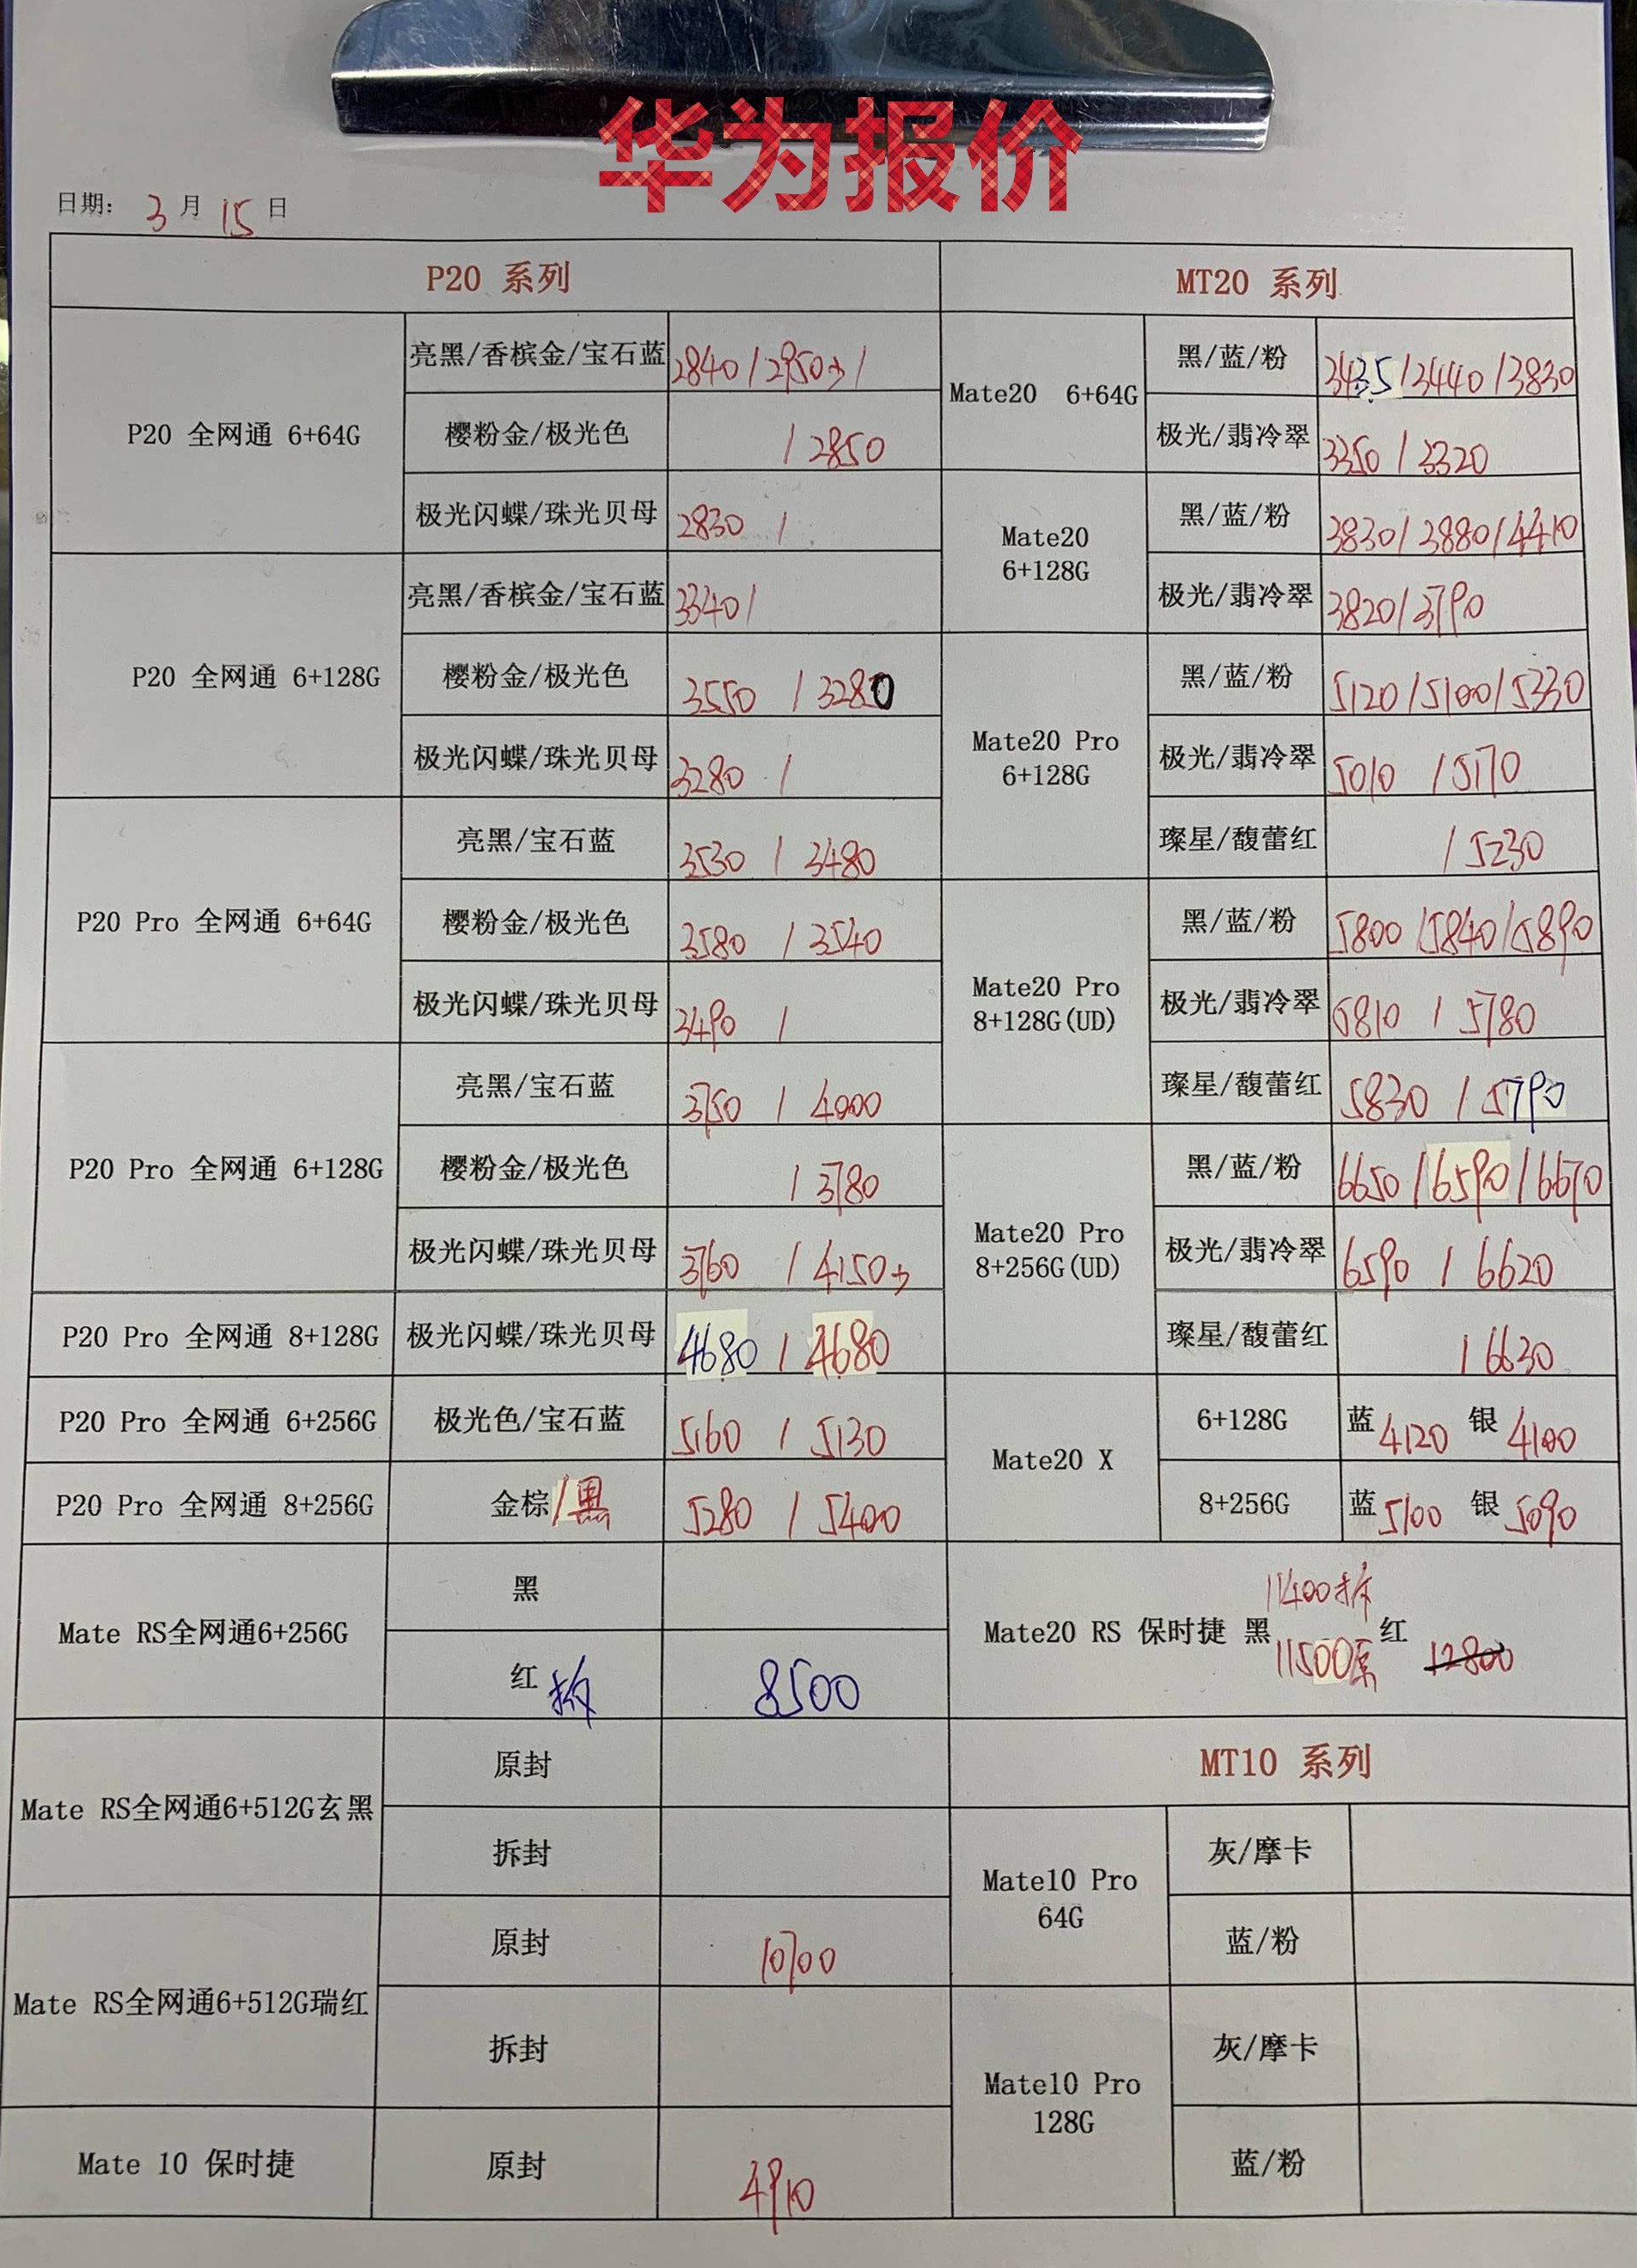 华为报价
日期: 3 月 15 日
P20 系列
P20 全网通 6+64G
亮黑/香槟金/宝石蓝 2840 / 2950少 /
樱粉金/极光色 / 2850
极光闪蝶/珠光贝母 2830 /
P20 全网通 6+128G
亮黑/香槟金/宝石蓝 3340 /
樱粉金/极光色 3550 / 3280
极光闪蝶/珠光贝母 3280 /
P20 Pro 全网通 6+64G
亮黑/宝石蓝 3530 / 3480
樱粉金/极光色 3580 / 3540
极光闪蝶/珠光贝母 3490 /
P20 Pro 全网通 6+128G
亮黑/宝石蓝 3750 / 4000
樱粉金/极光色 / 3780
极光闪蝶/珠光贝母 3760 / 4150少
P20 Pro 全网通 8+128G 极光闪蝶/珠光贝母 4680 / 4680
P20 Pro 全网通 6+256G 极光色/宝石蓝 5160 / 5130
P20 Pro 全网通 8+256G 金棕/黑 5280 / 5400
Mate RS全网通6+256G
黑
红 拆 8500
Mate RS全网通6+512G玄黑
原封
拆封
Mate RS全网通6+512G瑞红
原封 10700
拆封
Mate 10 保时捷 原封 4910
MT20 系列
Mate20 6+64G
黑/蓝/粉 3435 / 3440 / 3830
极光/翡冷翠 3350 / 3320
Mate20
6+128G
黑/蓝/粉 3830 / 3880 / 4410
极光/翡冷翠 3820 / 3790
Mate20 Pro
6+128G
黑/蓝/粉 5120 / 5100 / 5330
极光/翡冷翠 5010 / 5170
璨星/馥蕾红 / 5230
Mate20 Pro
8+128G(UD)
黑/蓝/粉 5800 / 5840 / 5890
极光/翡冷翠 5810 / 5780
璨星/馥蕾红 5830 / 5790
Mate20 Pro
8+256G(UD)
黑/蓝/粉 6650 / 6590 / 6670
极光/翡冷翠 6590 / 6620
璨星/馥蕾红 / 6630
Mate20 X
6+128G 蓝 4120 银 4100
8+256G 蓝 5100 银 5090
Mate20 RS 保时捷 黑 11400拆 11500原 红 12800
MT10 系列
Mate10 Pro
64G
灰/摩卡
蓝/粉
Mate10 Pro
128G
灰/摩卡
蓝/粉